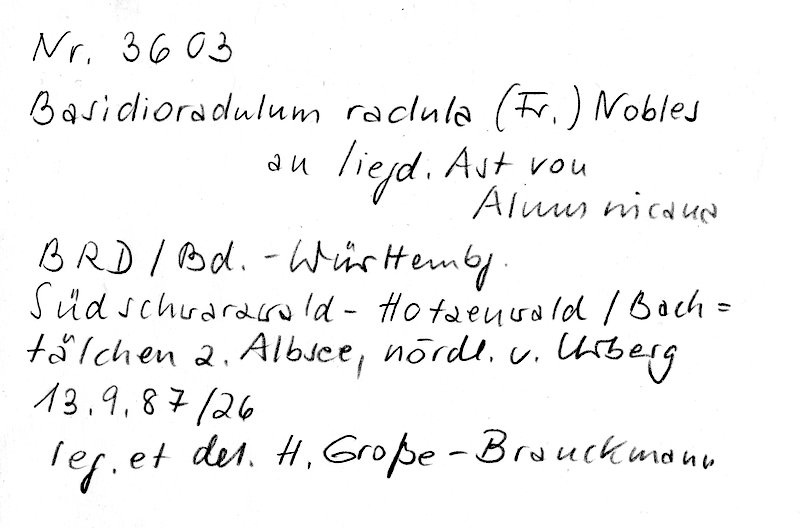 Nr. 3603
Basidioradulum radula (Fr.) Nobles
an liegd. Ast von
Alnus incana
BRD / Bd. - Württembg.
Südschwarzwald - Hotzenwald / Bach =
tälchen z. Albsee, nördl. v. Urberg
13.9.87/26
leg. et det. H. Große - Brauckmann